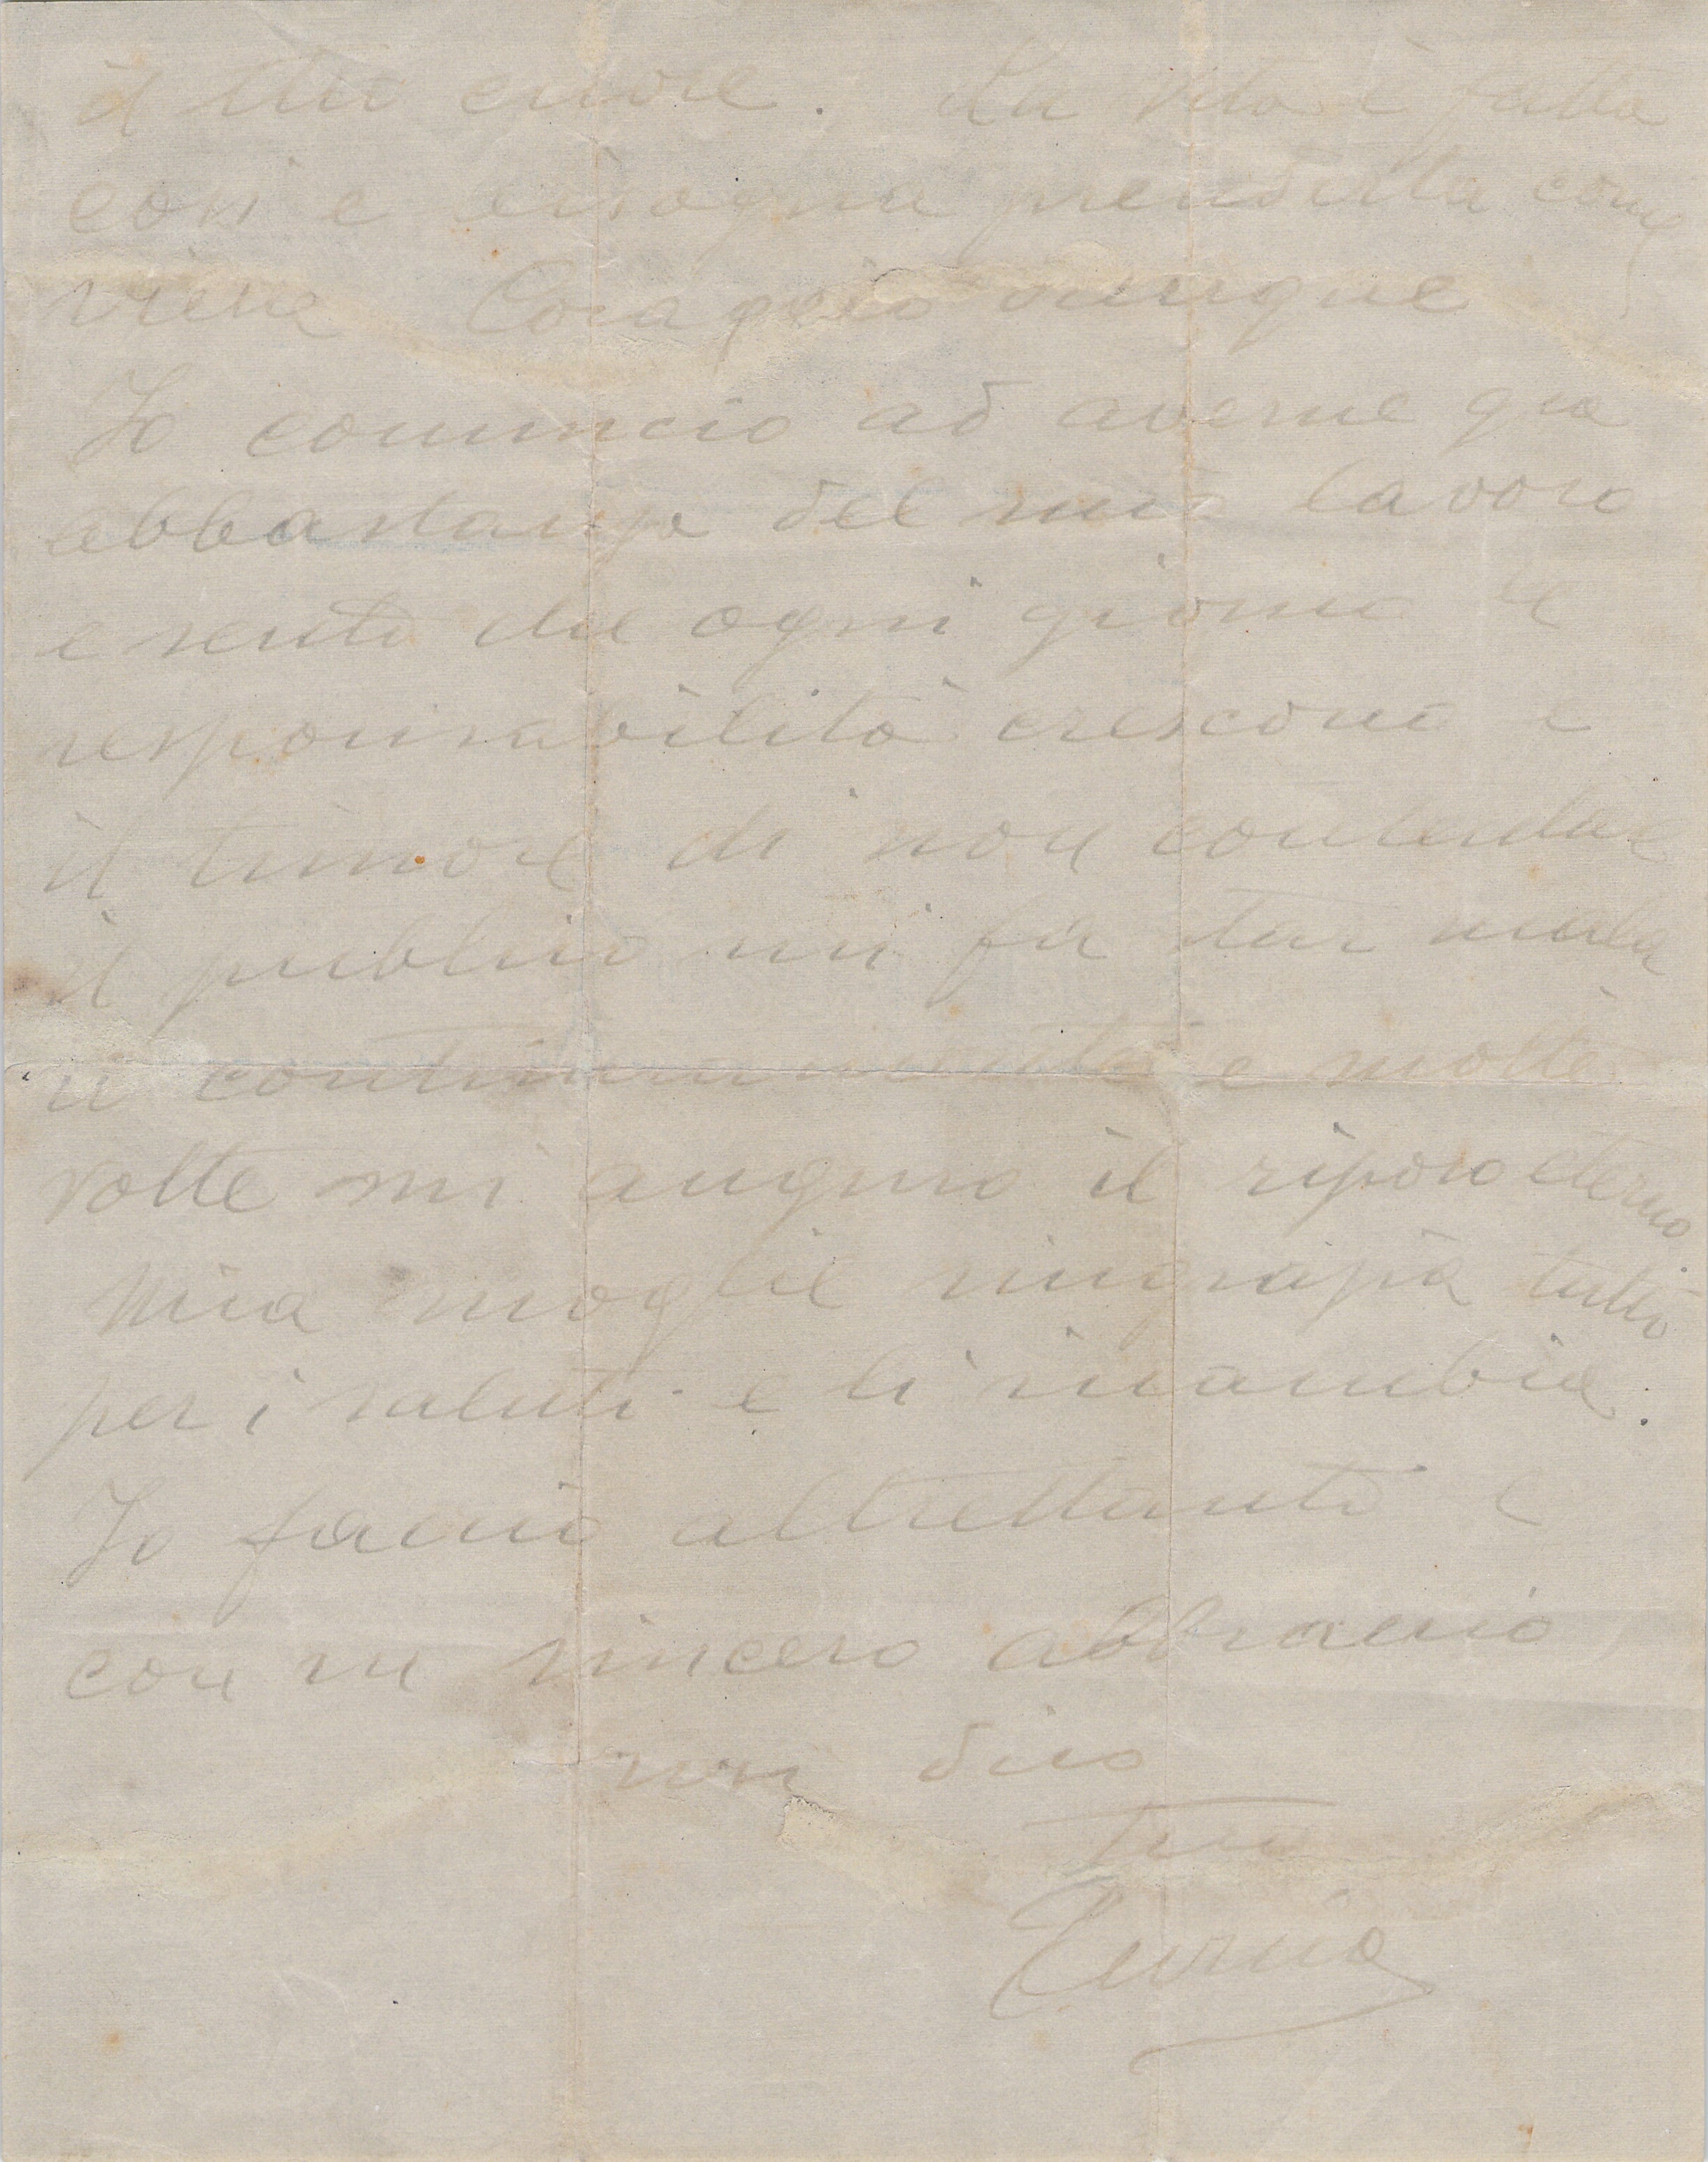 il tuo cuore. La vita è fatta
così e bisogna prenderla come
viene Coragio dunque
Io comincio ad averne gia
abbastanza del mio lavoro
e sento che ogni giorno le
responsabilità crescono e
il timore di non contentare
il publico mi fa star male
continuamente e molte
volte mi auguro il riposo eterno
Mia moglie ringrazia tutti
per i saluti e li ricambia.
Io faccio altrettanto e
con un sincero abbraccio
son dico
tuo